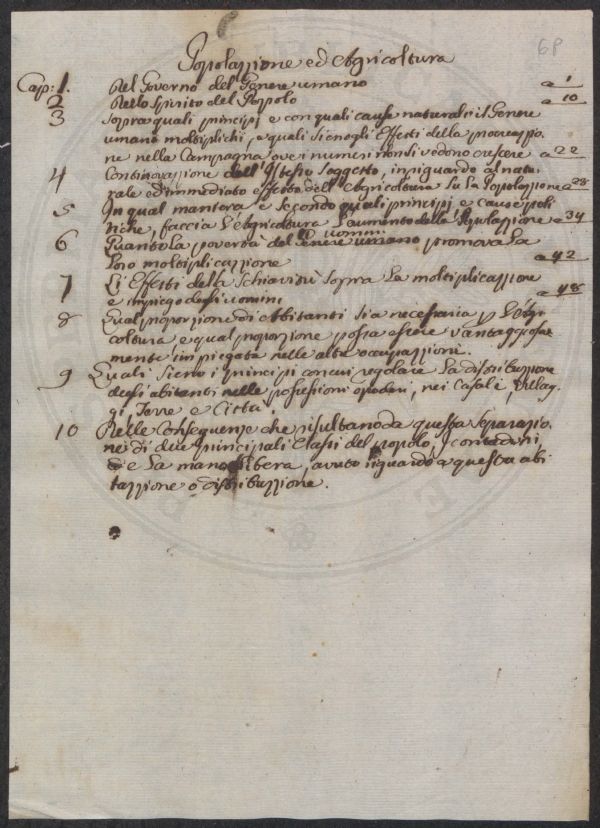 68
Popolazzione ed Agricoltura
Cap: 1. Del Governo del Genere umano a 1
2 Dello Spirito del Popolo a 10
3 Sopra quali principj e con quali cause naturali il Genere
umano moltiplichi, e quali sieno gli Effetti della procreazzio
ne nella Campagna ove i numeri non si vedono crescere a 22
4 Continovazione dell'Istesso Soggetto, in riguardo al natu
rale ed immediato effetto dell'Agricoltura su la Popolazzione a 28
5 In qual maniera e Secondo quali principj e cause poli
tiche, faccia L'Agricoltura L'aumento della Popolazzione a 34
uomini
6 Quanto La povertà del Genere umano promova La
loro moltiplicazzione a 42
7 Li Effetti della Schiavitù Sopra La moltiplicazzione
e impiego degli uomini a 48
8 Qual proporzione di Abitanti Sia necessaria p L'Agri
coltura, e qual proporzione possa essere vantaggiosa
mente impiegata nelle altre occupazzioni.
9 Quali Sieno i principj con cui regolare La distribuzzione
degli abitanti nelle possessioni o poderi, nei Casali, villag
gi, Terre e Città.
10 Delle Conseguenze che risultano da questa Separazio
ne di due principali Classi del popolo, contadini,
e La mano libera, avuto riguardo a questa abi
tazzione o distribuzzione.